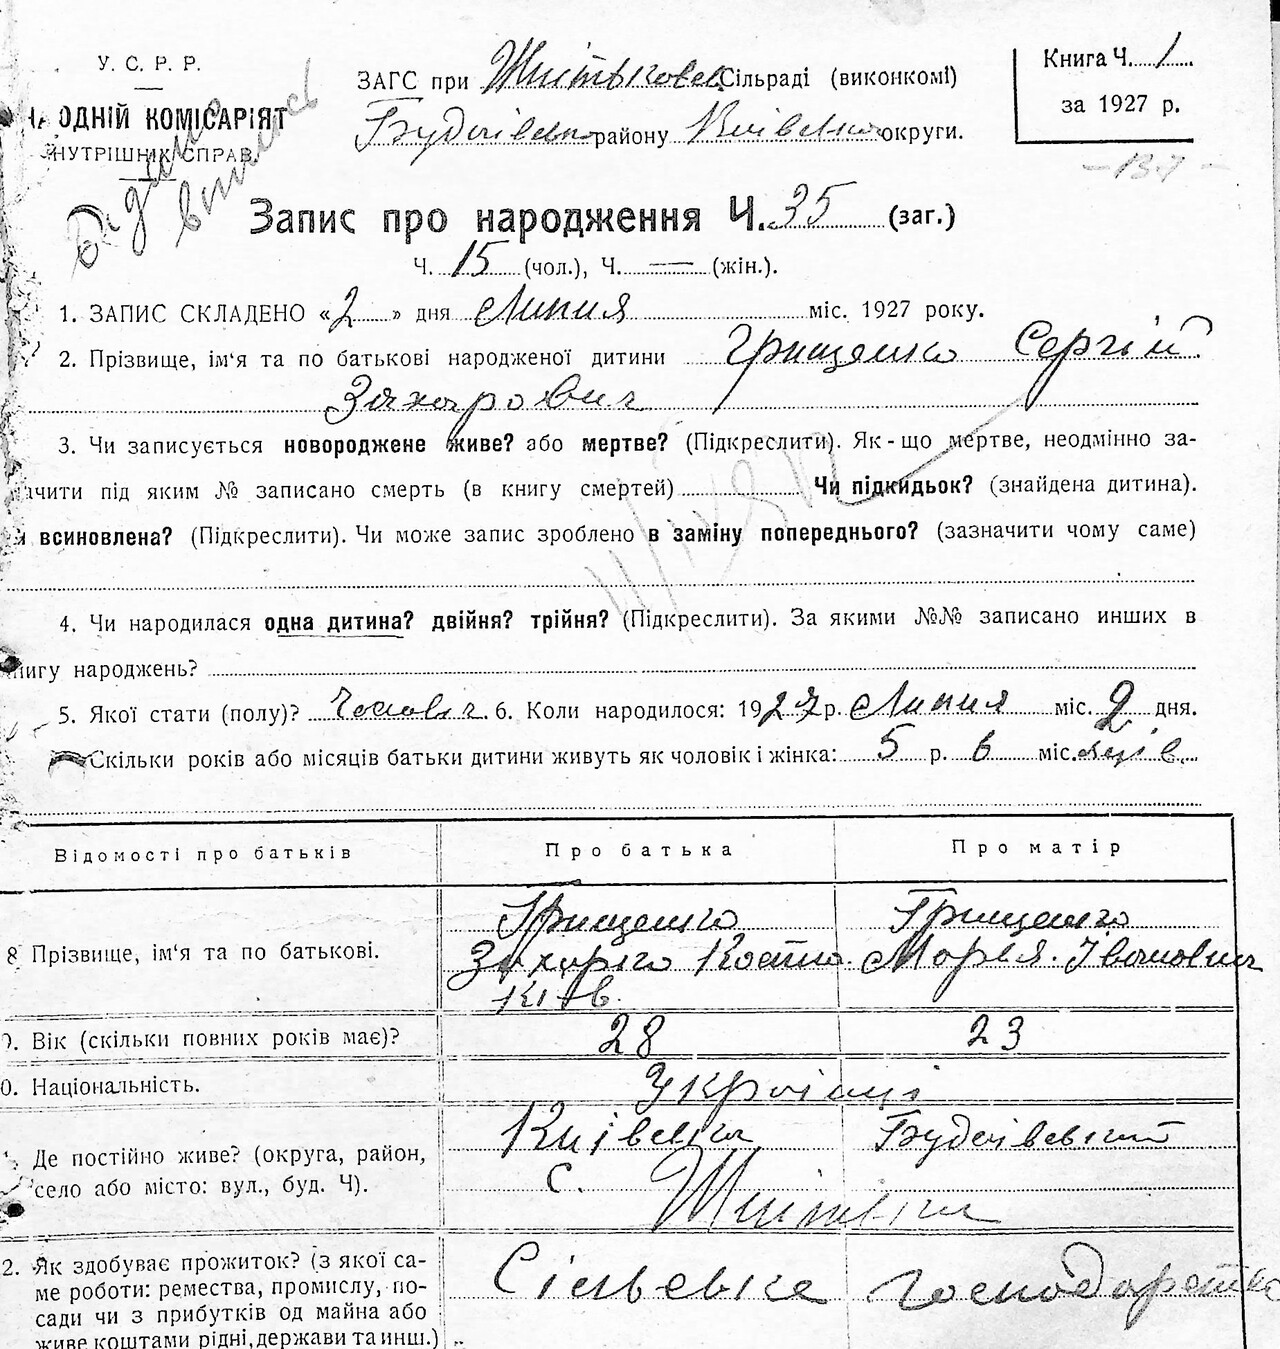 У. С. Р. Р.
НАРОДНІЙ КОМІСАРІЯТ
ВНУТРІШНІХ СПРАВ.
Видано
виписъ
ЗАГС при Сільраді (виконкомі)
району Київська округи.
Книга Ч. 1
за 1927 р.
- 137 -
Запис про народження Ч. 35 (заг.)
Ч. 15 (чол.), Ч. — (жін.).
1. ЗАПИС СКЛАДЕНО «2» дня Липня міс. 1927 року.
2. Прізвище, ім‘я та по батькові народженої дитини Грищенко Сергій
Захарович
3. Чи записується новороджене живе? або мертве? (Підкреслити). Як-що мертве, неодмінно за-
ачити під яким № записано смерть (в книгу смертей) Чи підкидьок? (знайдена дитина).
и всиновлена? (Підкреслити). Чи може запис зроблено в заміну попереднього? (зазначити чому саме)
4. Чи народилася одна дитина? двійня? трійня? (Підкреслити). За якими №№ записано инших в
нигу народжень?
5. Якої стати (полу)? Чоловіч. 6. Коли народилося: 1927 р. Липня міс. 2 дня.
Скільки років або місяців батьки дитини живуть як чоловік і жінка: 5 р. 6 міс.яців
Відомості про батьків Про батька Про матір
8 Прізвище, ім‘я та по батькові. Грищенко Грищенко
Захарко Костян Марья Івановна
тів.
9. Вік (скільки повних років має)? 28 23
0. Національність. Українці
Де постійно живе? (округа, район, Київська
село або місто: вул., буд. Ч). с.
2. Як здобуває прожиток? (з якої са- Сільське господарство
ме роботи: ремества, промислу, по-
сади чи з прибутків од майна або
живе коштами рідні, держави та инш.)